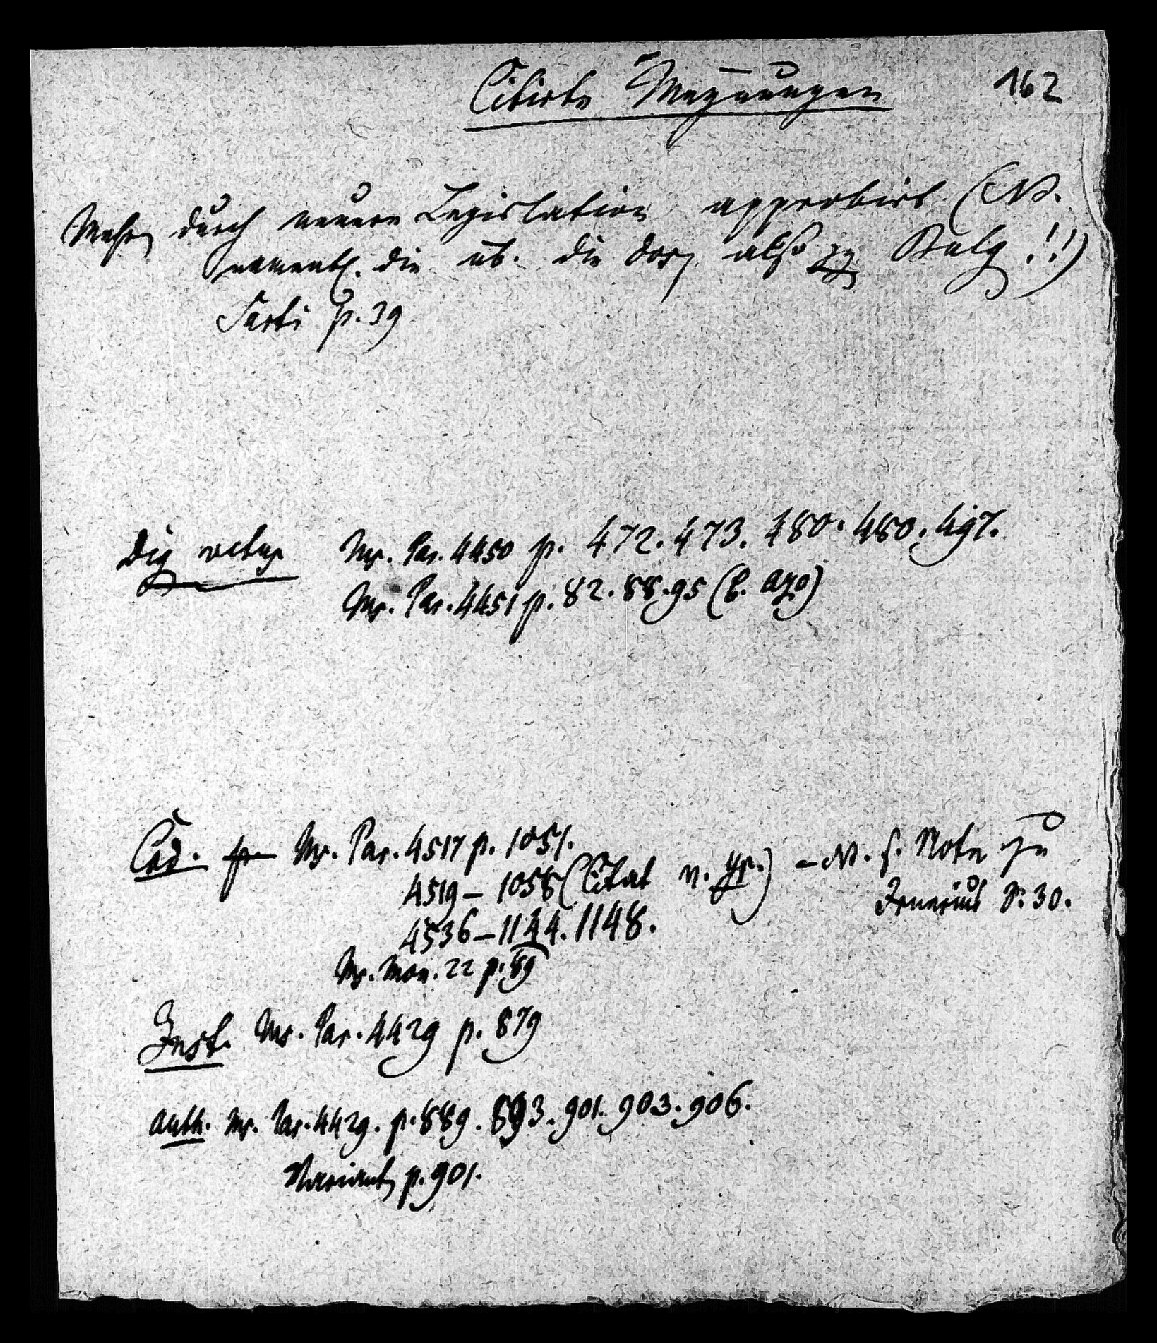 Citirte Meynungen 162
Mehre durch neuere Legislation approbirt (NB.
namentl. die üb. die dos, also zu !!)
Sarti p. 39
Dig vetus Ms. Par. 4450 p. 472. 473. 480. 480. 497.
Ms. Par. 4451 p. 82. 88. 95 (b. Azo)
Cod. Ms. Par. 4517 p. 1051.
4519 – 1058 (Citat v. yr.) – NB. s. Note zu
Irnerius N. 30.
4536 – 1144. 1148.
Ms. Mon. 22 p. 89
Inst. Ms. Par. 4429 p. 879
Auth. Ms. Par. 4429. p. 889. 893. 901. 903. 906.
Variante p. 901.